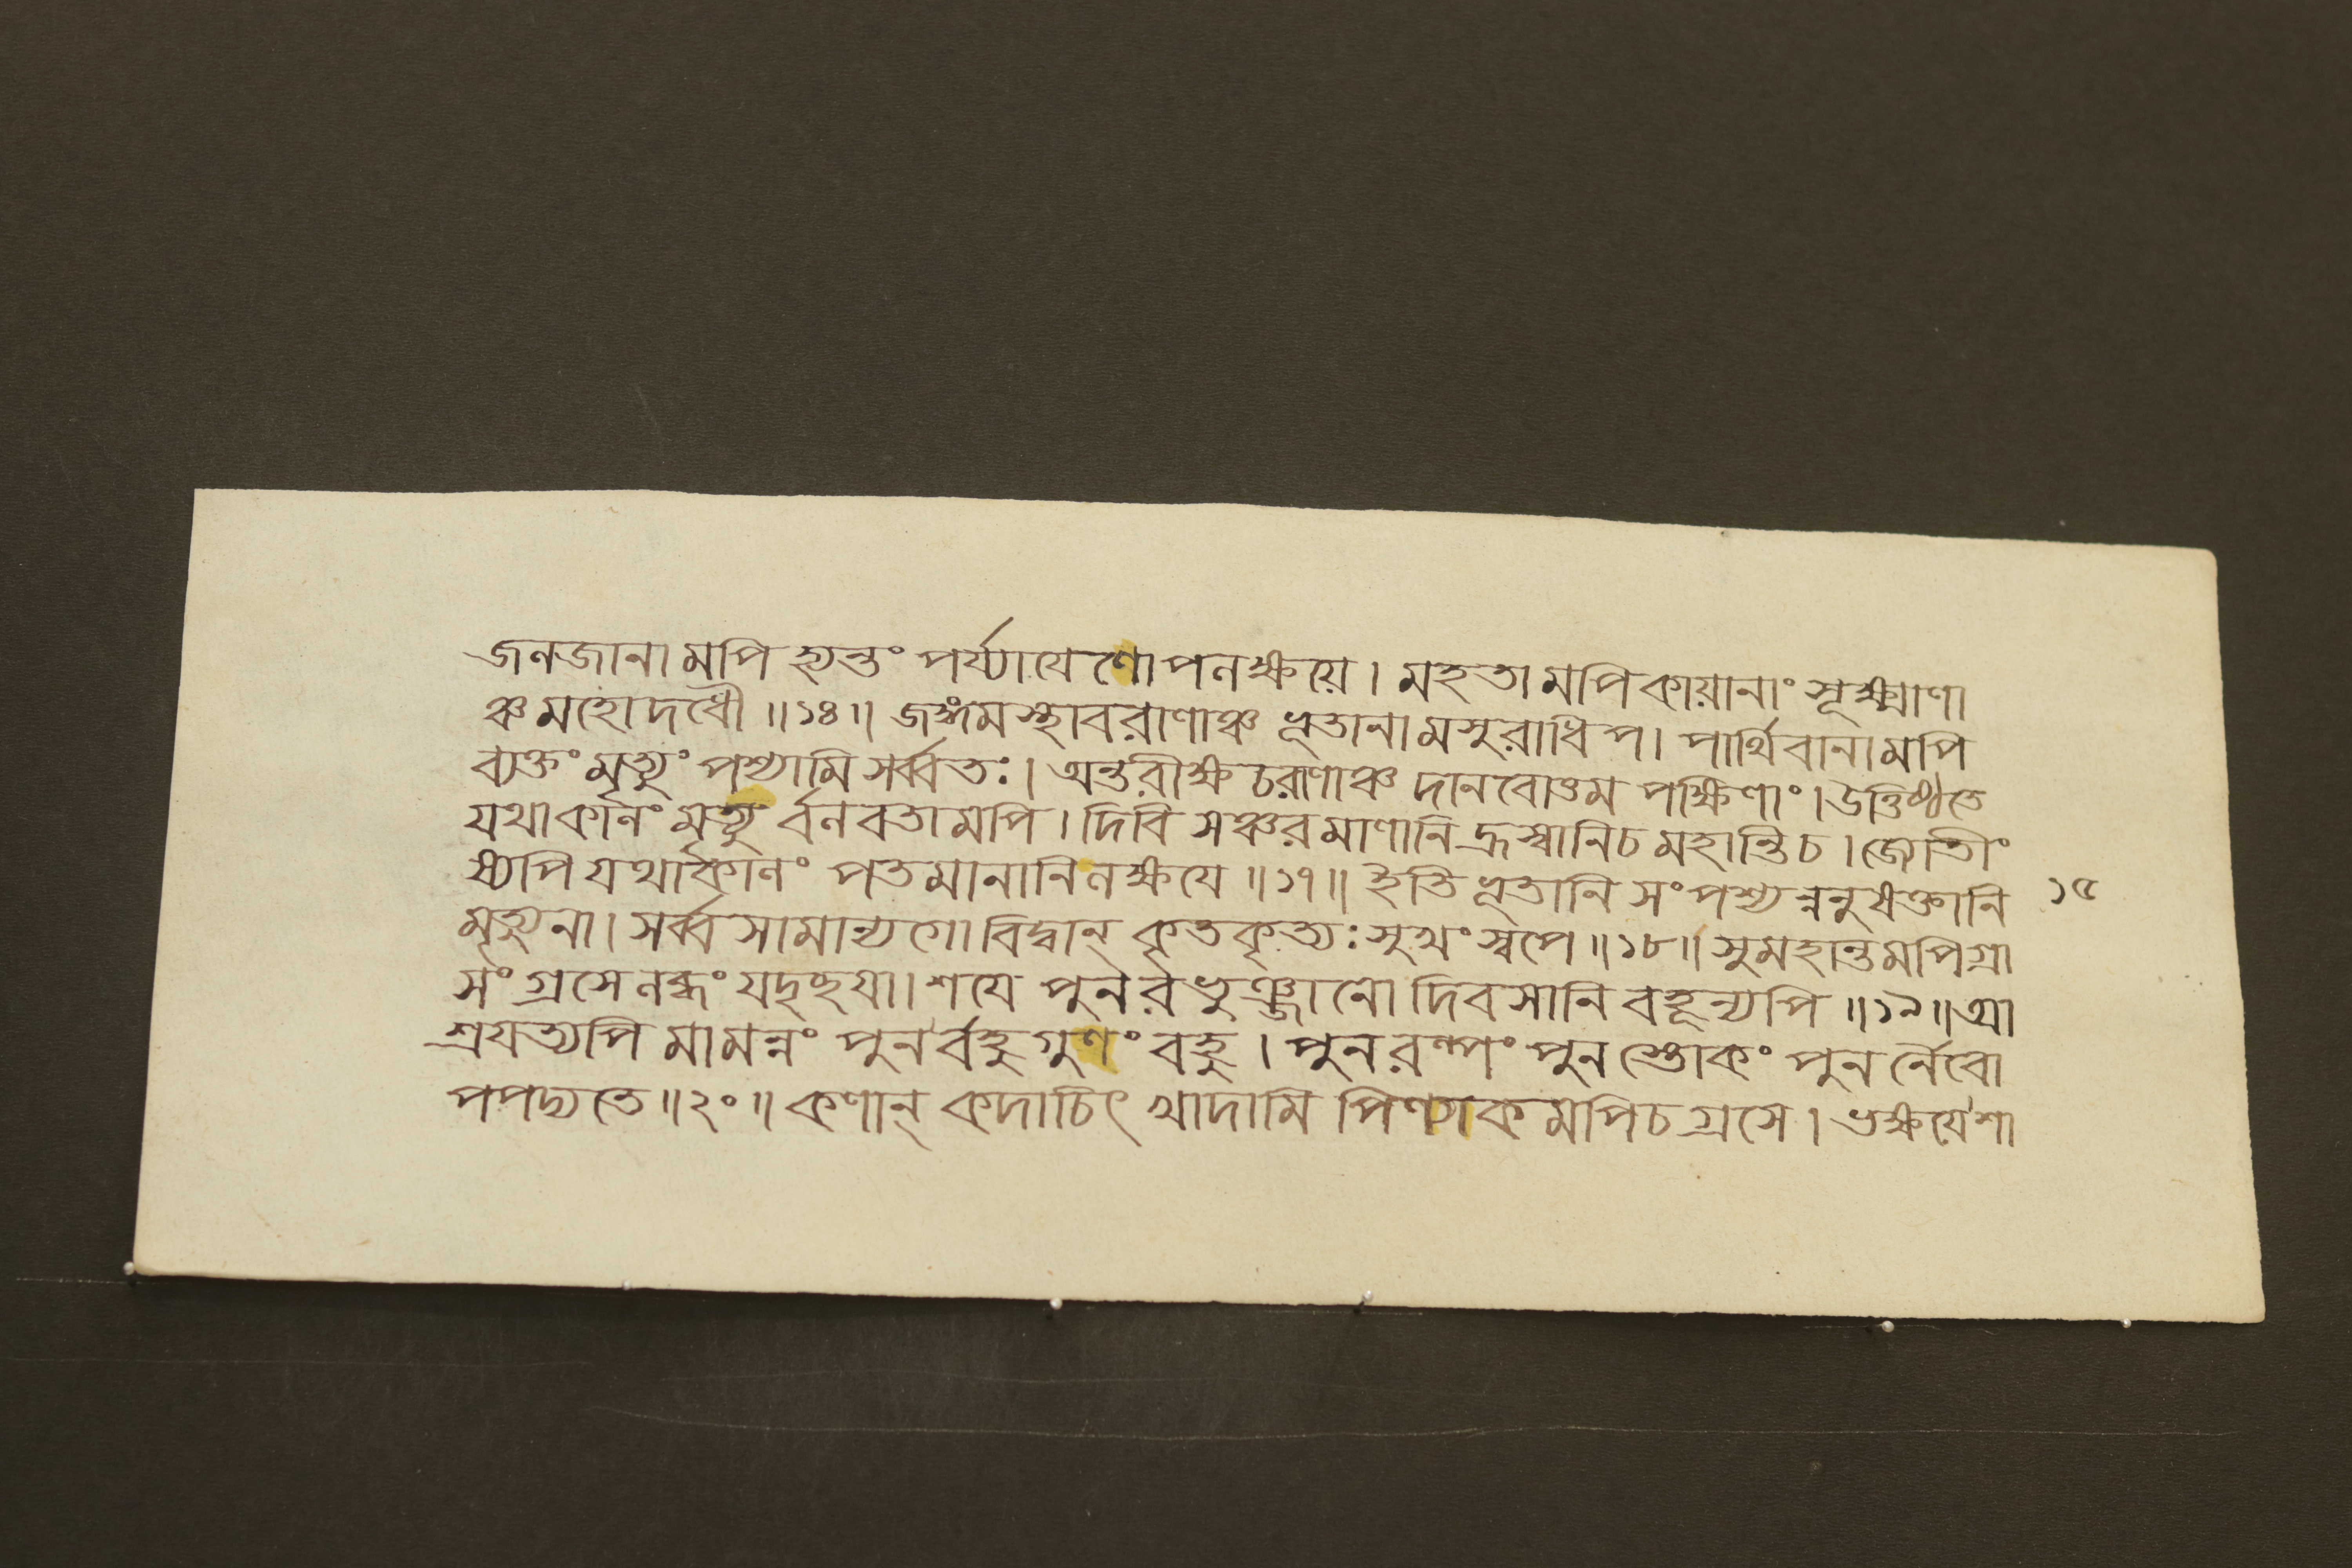 জলজানামপি হ্যন্তং পর্য্যায়েণোপলক্ষয়ে। মহতামপি কায়ানাং সূক্ষ্মাণা
ঞ্চ মহোদধৌ॥১৪॥ জঙ্গমস্থাবরাণাঞ্চ ভূতানামসুরাধিপ। পার্থিবানামপি
ব্যক্তং মৃত্যুং পশ্যামি সর্ব্বতঃ। অন্তরীক্ষচরাণাঞ্চ দানবোত্তম পক্ষিণাং। উত্তিষ্ঠতে
যথাকালং মৃত্যুর্বলবতামপি। দিবি সঞ্চরমাণানি হ্রস্বানি চ মহান্তি চ। জ্যোতীং
ষ্যপি যথাকালং পতমানানি লক্ষয়ে॥১৭॥ ইতি ভূতানি সংপশ্যন্ননুষক্তানি ১৫
মৃত্যুনা। সর্ব্বসামান্যগো বিদ্বান্ কৃতকৃত্যঃ সুখং স্বপে॥১৮॥ সুমহান্তমপি গ্রা
সং গ্রসে লব্ধং যদৃচ্ছয়া। শয়ে পুনরভুঞ্জানো দিবসানি বহূন্যপি॥১৯॥ আ
শ্রয়ত্যপি মামন্নং পুনর্বহুগুণং বহু। পুনরল্পং পুনস্তোকং পুনর্নৈবো
পপদ্যতে॥২০॥ কণান্ কদাচিৎ খাদামি পিণ্যাকমপি চ গ্রসে। ভক্ষয়ে শা